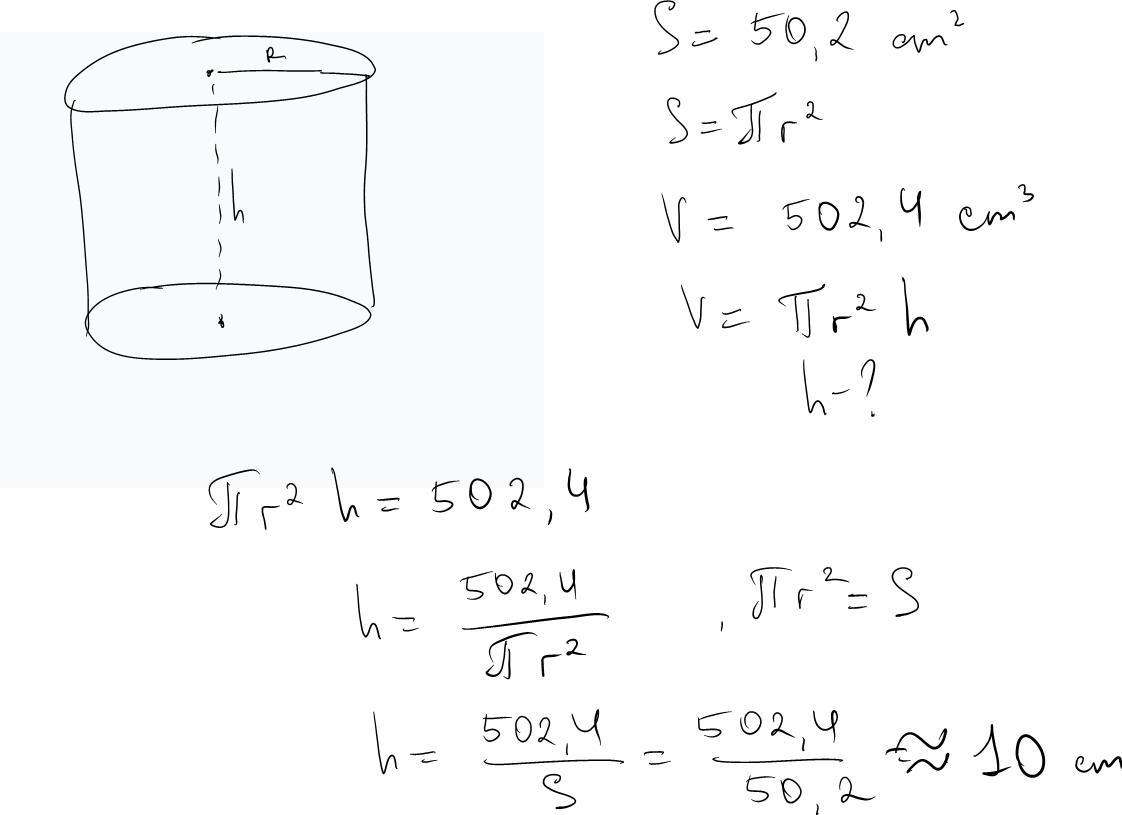 R
h
S = 50,2 cm²
S = πr²
V = 502,4 cm³
V = πr² h
h - ?
πr² h = 502,4
h = 502,4 / πr² , πr² = S
h = 502,4 / S = 502,4 / 50,2 ≈ 10 cm